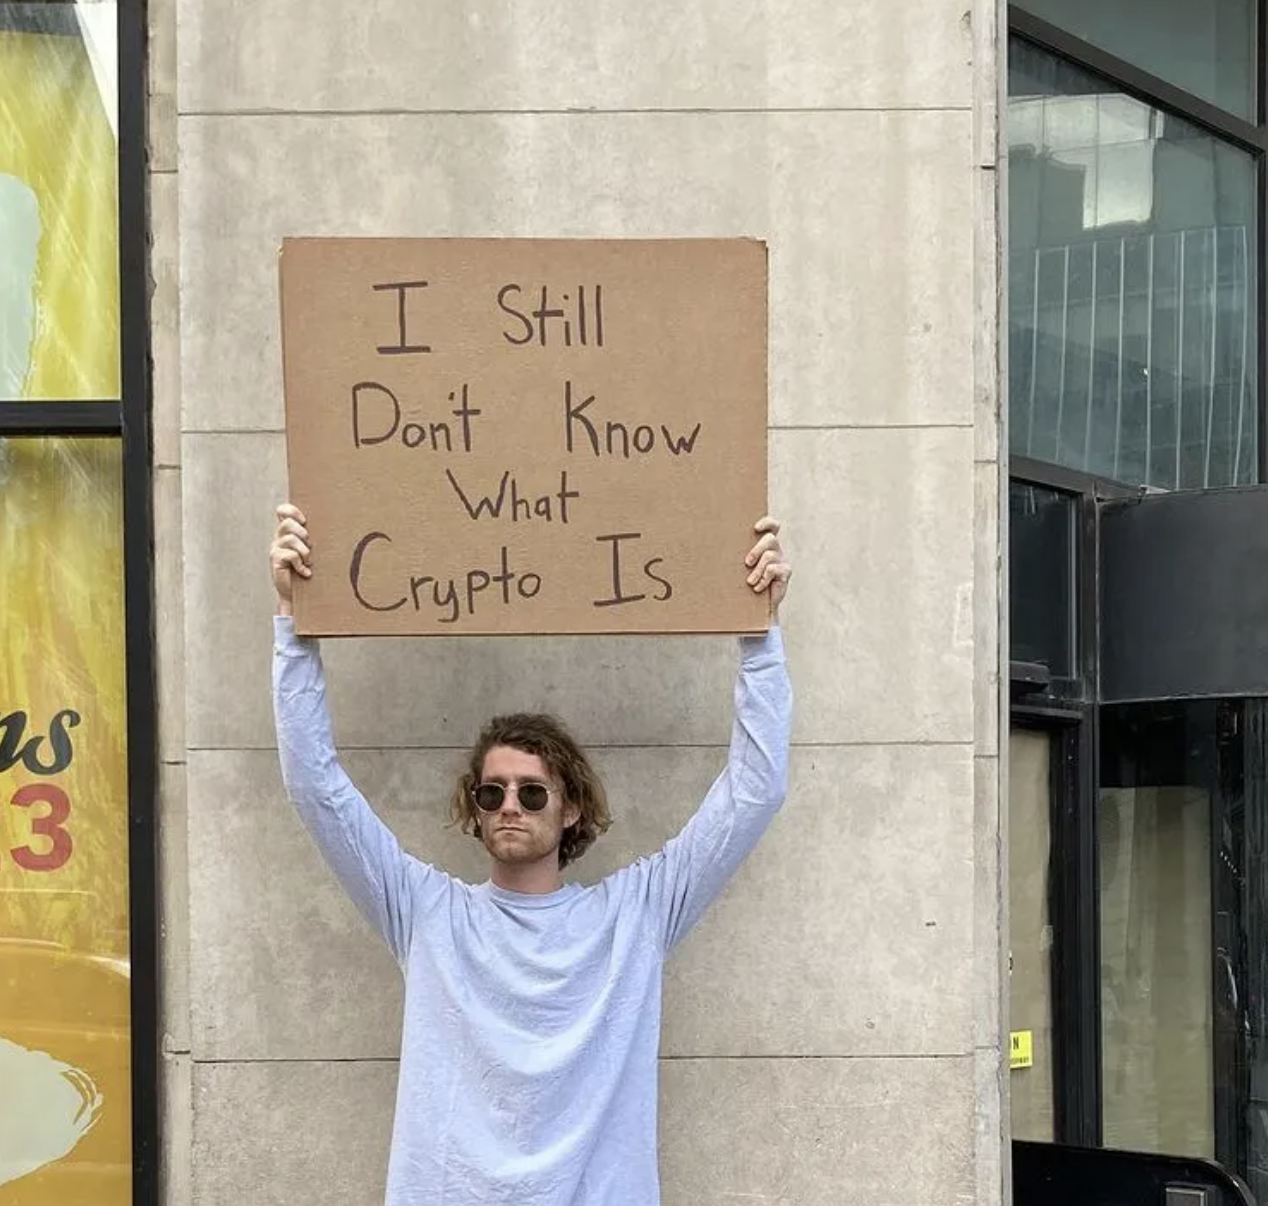 I Still
Don't Know
What
Crypto Is
ns
3
N